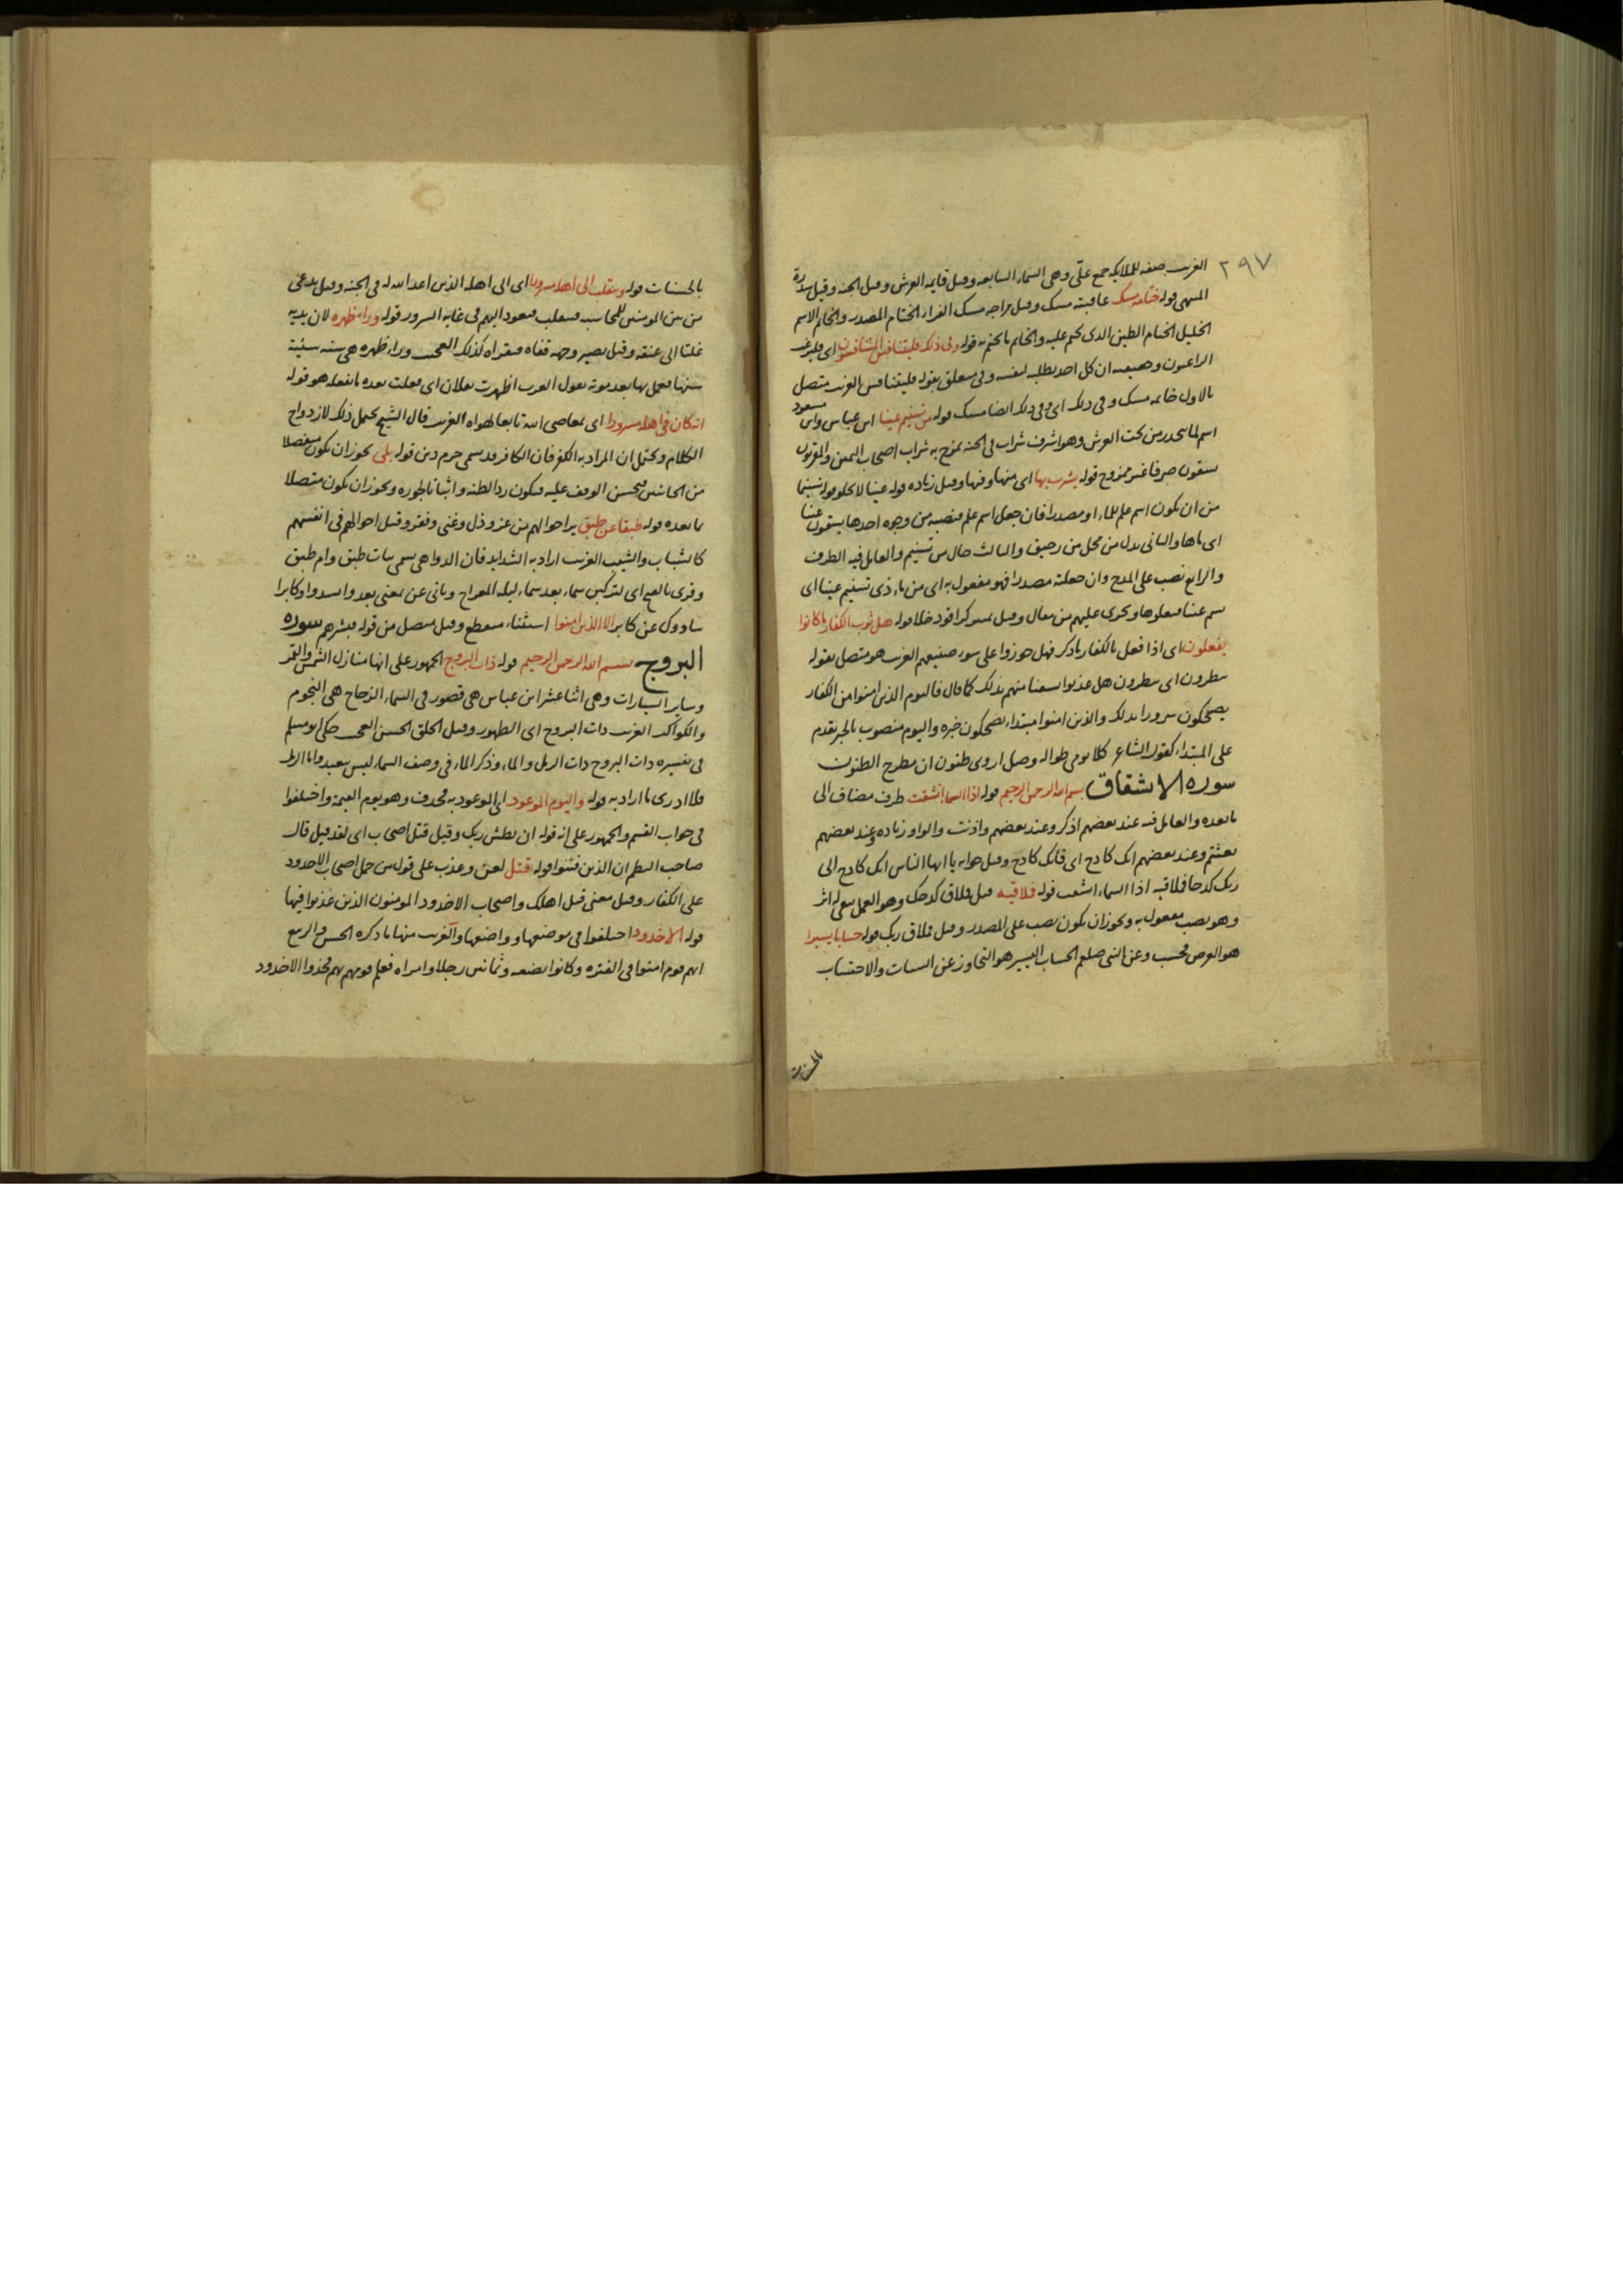 ٢٩٧
الغريب صفه للملايكه جمع علّى وهى السماء السابعه وقيل قايمه العرش وقيل الجنه وقيل سدرة
المنتهى قوله ختامه مسك عاقبته مسك وقيل مزاجه مسك الفراء الختام المصدر والخاتم الاسم
الخليل الختام الطين الذى ختم عليه والخاتم ما يختم به قوله وفى ذلك فليتنافس المتنافسون اى فليرغب
الراغبون وهيعه ان كل احد يطلبه لنفسه وفى متعلق بقوله فليتنافس الغريب متصل
بالاول ختامه مسك وفى ذلك اى وفى ذلك ايضا مسك قوله من تسنيم عينا ابن عباس وابن مسعود
اسم لما ينحدر من تحت العرش وهو اشرف شراب فى الجنه يمزج به شراب اصحاب اليمين والمقربون
يسقون صرفا غير ممزوج قوله يشرب بها اى منها وفيها وقيل زياده قوله عينا لا يخلو قوله تسنيما
من ان يكون اسم علم للماء او مصدرا فان جعل اسم علم فنصبه من وجوه احدها يسقون عينا
اى ماها والثانى بدل من محل من رحيق والثالث حال من تسنيم والعامل فيه الظرف
والرابع نصب على المدح وان جعلته مصدرا فهو مفعول به اى من ماء ذى تسنيم عينا اى
سم عينا فيعلوها ويجرى عليهم من معال وقيل قوله هل ثوب الكفار ما كانوا
يفعلون اى اذا فعل بالكفار ما ذكر فهل جوزوا على سوء صنيعهم الغريب هو متصل بقوله
ينظرون اى ينظرون هل عذبوا منهم بذلك كما قال فاليوم الذين امنوا من الكفار
يضحكون سرورا بذلك والذين امنوا مبتدا يضحكون خبره واليوم منصوب بالخبر تقدم
على المبتداء كقول الشاعر كلا يومى طواله وصل اروى ظنون ان مطرح الظنون
سوره الانشقاق بسم الله الرحمن الرحيم قوله اذا السماء انشقت ظرف مضاف الى
ما بعده والعامل فيه عند بعضهم اذكر وعند بعضهم واذنت والواو زياده وعند بعضهم
بعثتم وعند بعضهم انك كادح اى فانك كادح وقيل جوابه يا ايها الناس انك كادح الى
ربك كدحا فملاقيه اذا السماء انشقت قوله فملاقيه قيل فملاق كدحك وهو العمل يبقى له اثر
وهو نصب مفعول به ويجوز ان يكون نصب على المصدر وقيل فملاق ربك قوله حسابا يسيرا
هو العرض فحسب وعن النبى صلعم الحساب اليسير هو التجاوز عن السيات والاحتساب
بالحسنات
بالحسنات قوله وينقلب الى اهله مسرورا اى الى اهله الذين اعد الله له فى الجنه وقيل يدعى
من بين المومنين للمحاسبه فينقلب فيعود اليهم فى غايه السرور قوله وراء ظهره لان يديه
غلتا الى عنقه وقيل يصير وجهه قفاه فيقراه كذلك العجيب وراء ظهره هى سنه سيئة
سنها فعمل بها بعد موته يقول العرب اظهرت بفلان اى فعلت بعده ما يفعله هو قوله
انه كان فى اهله مسرورا اى بمعاصى الله تابعا لهواه الغريب قال الشيخ يحتمل ذلك لازدواج
الكلام ويحتمل ان المراد به الكفر فان الكافر قد يسمى حزم دين قوله بلى يجوز ان يكون منفصلا
من الجانبين فيحسن الوقف عليه فيكون ردا لظنه واثباتا لحوره ويجوز ان يكون متصلا
بما بعده قوله طبقا عن طبق يرا احوالهم من عز وذل وغنى وفقر وقيل احوالهم فى انفسهم
كالشباب والشيب الغريب اراد به الشدايد فان الدواهى يسمى بنات طبق وام طبق
وقرى بالفتح اى لتركبن سماء بعد سماء ليله المعراج وياتى عن بمعنى بعد وانشدوا وكابرا
سادوك عن كابر الا الذين امنوا استثناء منقطع وقيل متصل من قوله فبشرهم سوره
البروج بسم الله الرحمن الرحيم قوله ذات البروج الجمهور على انها منازل الشمس والقمر
وساير السيارات وهى اثنا عشر ابن عباس هى قصور فى السماء الزجاج هى النجوم
والكواكب الغريب ذات البروج اى الظهور وقيل الخلق الحسن العجيب حكى ابو مسلم
فى تفسيره ذات البروج ذات الرمل والماء وذكر الماء فى وصف السماء ليس ببعيد واما الرمل
فلا ادرى ما اراد به قوله واليوم الموعود اى الموعود به فحذف وهو يوم القيمة واختلفوا
فى جواب القسم والجمهور على انه قوله ان بطش ربك وقيل قتل اصحاب اى لقد قتل قال
صاحب النظم ان الذين فتنوا قوله قتل لعن وعذب على قول من حمل اصحاب الاخدود
على الكفار وقيل معنى قتل اهلك واصحاب الاخدود المومنون الذين عذبوا فيها
قوله الاخدود اختلفوا فى موضعها وواضعها والغريب منها ما ذكره الحسن والربيع
انهم قوم امنوا فى الفتره وكانوا بضعه وثمانين رجلا وامراه فعلم قومهم بهم فخذوا الاخدود